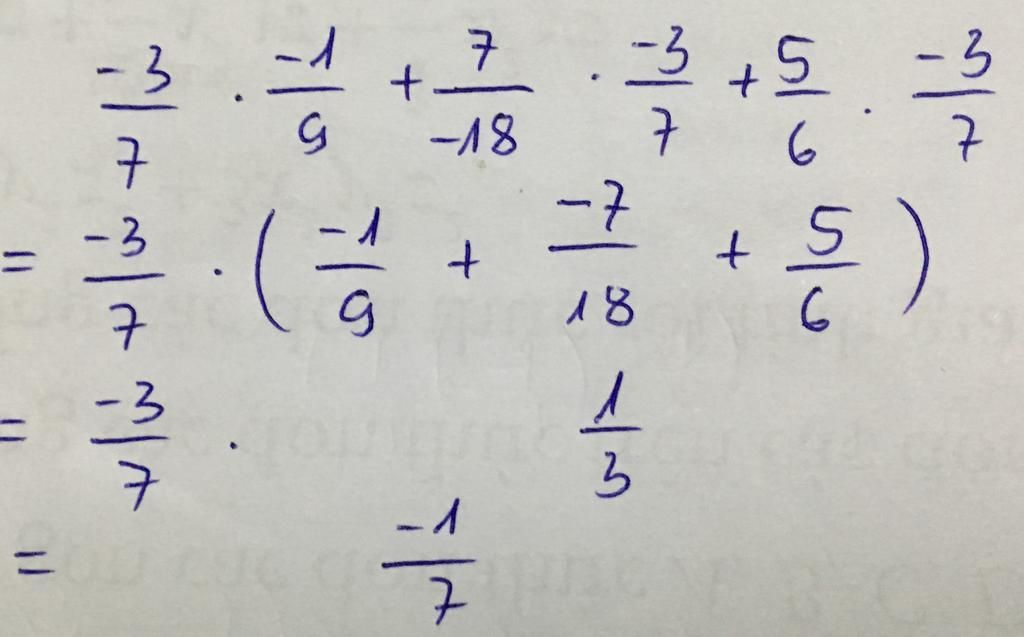 -3/7 . -1/9 + 7/-18 . -3/7 + 5/6 . -3/7
= -3/7 . ( -1/9 + -7/18 + 5/6 )
= -3/7 . 1/3
= -1/7